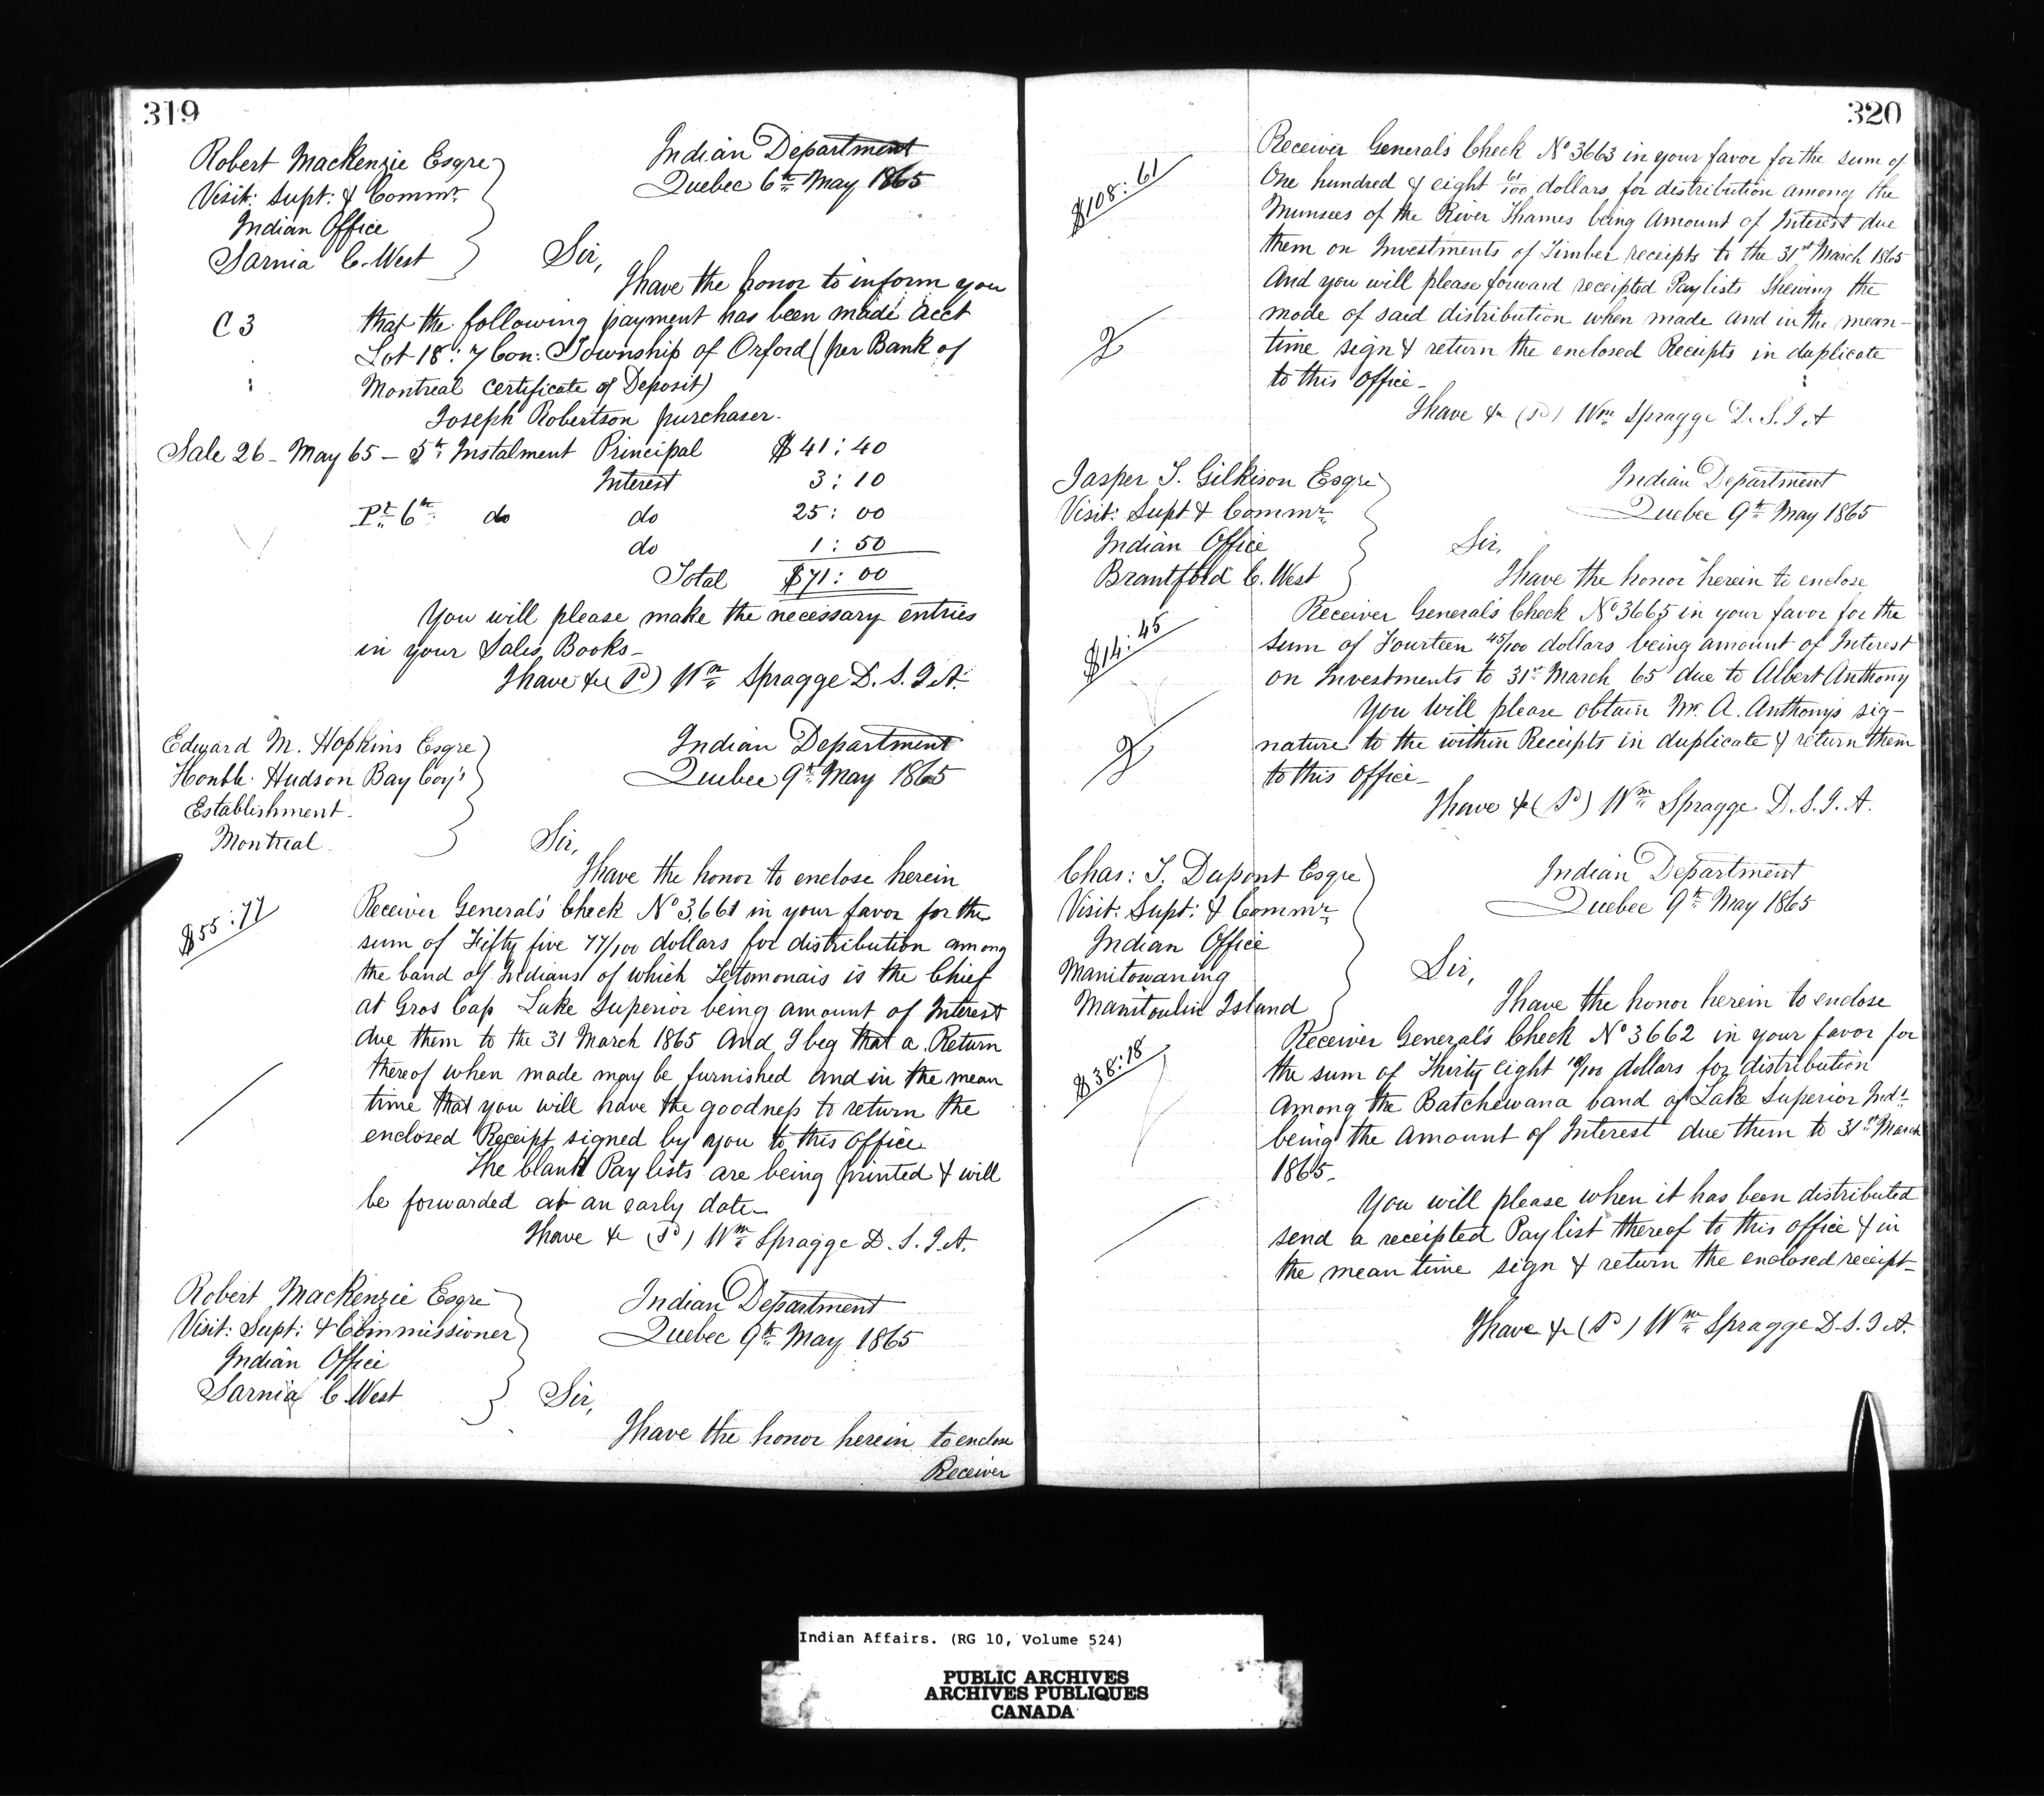 319
Robert MacKenzie Esqre
Visit: Supt: & Commr.
Indian Office
Sarnia C. West
Indian Department
Quebec 6th May 1865
Sir,
I have the honor to inform you
C 3
that the following payment has been made acct
Lot 18: 7 Con: Township of Orford (per Bank of
Montreal Certificate of Deposit)
Joseph Robertson purchaser.
Sale 26 - May 65 - 5th Instalment Principal $41:40
Interest 3:10
Pt. 6th do do 25:00
do 1:50
Total $71:00
You will please make the necessary entries
in your Sales Books -
I have &c (Sd) Wm Spragge D.S.I.A.
Edward M. Hopkins Esqre
Honble. Hudson Bay Coy's
Establishment
Montreal
Indian Department
Quebec 9th May 1865
Sir,
I have the honor to enclose herein
$55:77
Receiver General's Check No 3661 in your favor for the
sum of Fifty five 77/100 dollars for distribution among
the band of Indians of which Tetomonais is the Chief
at Gros Cap Lake Superior being amount of Interest
due them to the 31 March 1865 And I beg that a Return
thereof when made may be furnished and in the mean
time that you will have the goodness to return the
enclosed Receipt signed by you to this Office
The blank Paylists are being printed & will
be forwarded at an early date -
I have &c (Sd) Wm Spragge D.S.I.A.
Robert MacKenzie Esqre
Visit: Supt: & Commissioner
Indian Office
Sarnia C. West
Indian Department
Quebec 9th May 1865
Sir,
I have the honor herein to enclose
Receiver
320
Receiver General's Check No 3663 in your favor for the sum of
$108:61
One hundred & eight 61/100 dollars for distribution among the
Munsees of the River Thames being Amount of Interest due
them on Investments of Timber receipts to the 31st March 1865
And you will please forward receipted Paylists Shewing the
mode of said distribution when made and in the mean-
time sign & return the enclosed Receipts in duplicate
2
to this Office -
I have &c (Sd) Wm Spragge D.S.I.A
Jasper T. Gilkison Esqre
Visit: Supt & Commr.
Indian Office
Brantford C. West
Indian Department
Quebec 9th May 1865
Sir,
I have the honor herein to enclose
Receiver General's Check No 3665 in your favor for the
$14:45
sum of Fourteen 45/100 dollars being amount of Interest
on Investments to 31st March 65 due to Albert Anthony
You will please obtain Mr. A. Anthony's sig-
nature to the within Receipts in duplicate & return them
2
to this Office -
I have &c (Sd) Wm Spragge D.S.I.A.
Chas: T. Dupont Esqre
Visit: Supt: & Commr.
Indian Office
Manitowaning
Manitoulin Island
Indian Department
Quebec 9th May 1865
Sir,
I have the honor herein to enclose
Receiver General's Check No 3662 in your favor for
$38:18
the sum of Thirty Eight 18/100 dollars for distribution
Among the Batchewana band of Lake Superior Inds.
being the Amount of Interest due them to 31st March
1865 -
You will please when it has been distributed
send a receipted Paylist thereof to this Office & in
the mean time sign & return the enclosed receipt -
I have &c (Sd) Wm Spragge D.S.I.A.
Indian Affairs. (RG 10, Volume 524)
PUBLIC ARCHIVES
ARCHIVES PUBLIQUES
CANADA